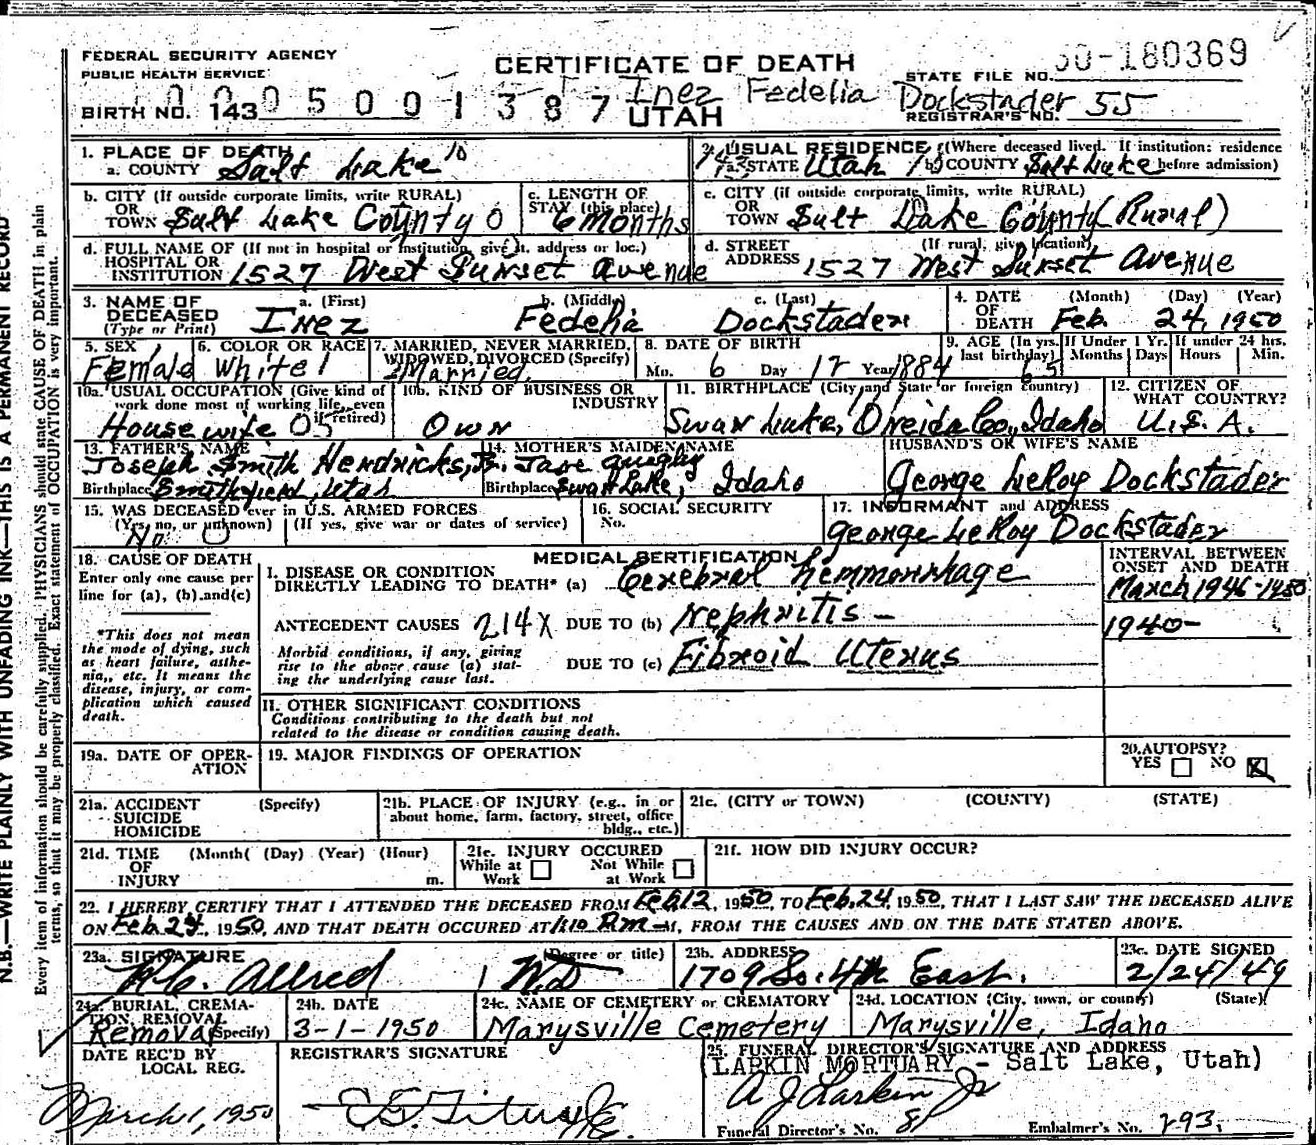 FEDERAL SECURITY AGENCY
PUBLIC HEALTH SERVICE
CERTIFICATE OF DEATH
STATE FILE NO. 50-180369
BIRTH NO. 143 0005001387
Inez Fedelia Dockstader
UTAH
REGISTRAR'S NO. 55
1. PLACE OF DEATH
a. COUNTY Salt Lake 10
2. USUAL RESIDENCE (Where deceased lived. If institution: residence before admission)
a. STATE Utah b. COUNTY Salt Lake
b. CITY (If outside corporate limits, write RURAL) OR TOWN Salt Lake County 0
c. LENGTH OF STAY (this place) 6 Months
c. CITY (if outside corporate limits, write RURAL) OR TOWN Salt Lake County (Rural)
d. FULL NAME OF (If not in hospital or institution, give st. address or loc.) HOSPITAL OR INSTITUTION 1527 West Sunset Avenue
d. STREET ADDRESS (If rural, give location) 1527 West Sunset Avenue
3. NAME OF DECEASED (Type or Print)
a. (First) Inez
b. (Middle) Fedelia
c. (Last) Dockstader
4. DATE OF DEATH (Month) (Day) (Year) Feb. 24, 1950
5. SEX Female
6. COLOR OR RACE White 1
7. MARRIED, NEVER MARRIED, WIDOWED, DIVORCED (Specify) Married
8. DATE OF BIRTH
Mo. 6 Day 12 Year 1884
9. AGE (In yrs. last birthday) 65
If Under 1 Yr. Months Days
If under 24 hrs. Hours Min.
10a. USUAL OCCUPATION (Give kind of work done most of working life, even if retired) Housewife 05
10b. KIND OF BUSINESS OR INDUSTRY Own
11. BIRTHPLACE (City and State or foreign country) Swan Lake, Oneida Co., Idaho
12. CITIZEN OF WHAT COUNTRY? U.S.A.
13. FATHER'S NAME Joseph Smith Hendricks, Jr.
Birthplace Smithfield, Utah
14. MOTHER'S MAIDEN NAME Jane Quigley
Birthplace Swan Lake, Idaho
HUSBAND'S OR WIFE'S NAME
George LeRoy Dockstader
15. WAS DECEASED ever in U.S. ARMED FORCES
(Yes, no, or unknown) (If yes, give war or dates of service)
No 0
16. SOCIAL SECURITY No.
17. INFORMANT and ADDRESS
George LeRoy Dockstader
18. CAUSE OF DEATH
Enter only one cause per line for (a), (b) and (c)
*This does not mean the mode of dying, such as heart failure, asthenia, etc. It means the disease, injury, or complication which caused death.
MEDICAL CERTIFICATION
INTERVAL BETWEEN ONSET AND DEATH
I. DISEASE OR CONDITION DIRECTLY LEADING TO DEATH* (a) Cerebral hemmorrhage
March 1946-1950
ANTECEDENT CAUSES 214X DUE TO (b) Nephritis -
1940-
Morbid conditions, if any, giving rise to the above cause (a) stating the underlying cause last.
DUE TO (c) Fibroid Uterus
II. OTHER SIGNIFICANT CONDITIONS
Conditions contributing to the death but not related to the disease or condition causing death.
19a. DATE OF OPERATION
19. MAJOR FINDINGS OF OPERATION
20. AUTOPSY?
YES NO X
21a. ACCIDENT SUICIDE HOMICIDE (Specify)
21b. PLACE OF INJURY (e.g., in or about home, farm, factory, street, office bldg., etc.)
21c. (CITY or TOWN) (COUNTY) (STATE)
21d. TIME OF INJURY (Month) (Day) (Year) (Hour) m.
21e. INJURY OCCURED
While at Work Not While at Work
21f. HOW DID INJURY OCCUR?
22. I HEREBY CERTIFY THAT I ATTENDED THE DECEASED FROM Feb 12, 1950, TO Feb. 24, 1950, THAT I LAST SAW THE DECEASED ALIVE
ON Feb. 24, 1950, AND THAT DEATH OCCURED AT 1:10 A.M. M, FROM THE CAUSES AND ON THE DATE STATED ABOVE.
23a. SIGNATURE (Degree or title)
Allred M.D
23b. ADDRESS
1709 So. 4th East.
23c. DATE SIGNED
2/24/49
24a. BURIAL, CREMATION, REMOVAL (Specify) Removal
24b. DATE
3-1-1950
24c. NAME OF CEMETERY or CREMATORY
Marysville Cemetery
24d. LOCATION (City, town, or county) (State)
Marysville, Idaho
DATE REC'D BY LOCAL REG.
March 1, 1950
REGISTRAR'S SIGNATURE
25. FUNERAL DIRECTOR'S SIGNATURE AND ADDRESS
LARKIN MORTUARY - Salt Lake, Utah)
A J Larkin Jr
Funeral Director's No. 81 Embalmer's No. 293
N.B.—WRITE PLAINLY WITH UNFADING INK—THIS IS A PERMANENT RECORD
Every item of information should be carefully supplied. PHYSICIANS should state CAUSE OF DEATH in plain
terms, so that it may be properly classified. Exact statement of OCCUPATION is very important.